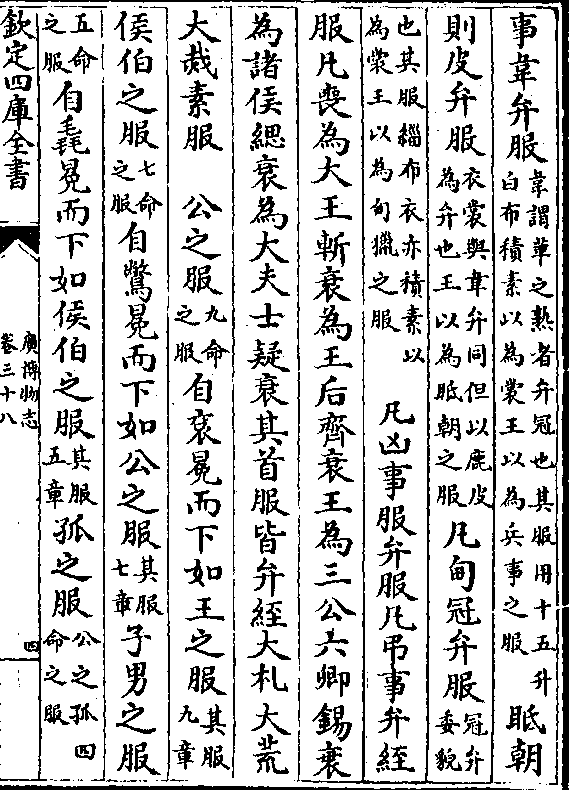 事韋弁服韋謂革之熟者弁冠也其服用十五升白布積素以為裳王以為兵事之服眡朝
則皮弁服衣裳與韋弁同但以鹿皮為弁也王以為眡朝之服凡甸冠弁服冠弁委貌
也其服緇布衣亦積素以為裳王以為甸獵之服　凡凶事服弁服凡弔事弁絰
服凡喪為大王斬衰為王后齊衰王為三公六卿錫衰
為諸侯緦衰為大夫士疑衰其首服皆弁絰大札大荒
大烖素服　公之服九命之服自袞冕而下如王之服其服九章
侯伯之服七命之服自鷩冕而下如公之服其服七章子男之服
五命之服自毳冕而下如侯伯之服其服五章孤之服公之孤四命之服
欽定四庫全書
廣博物志
卷三十八
四